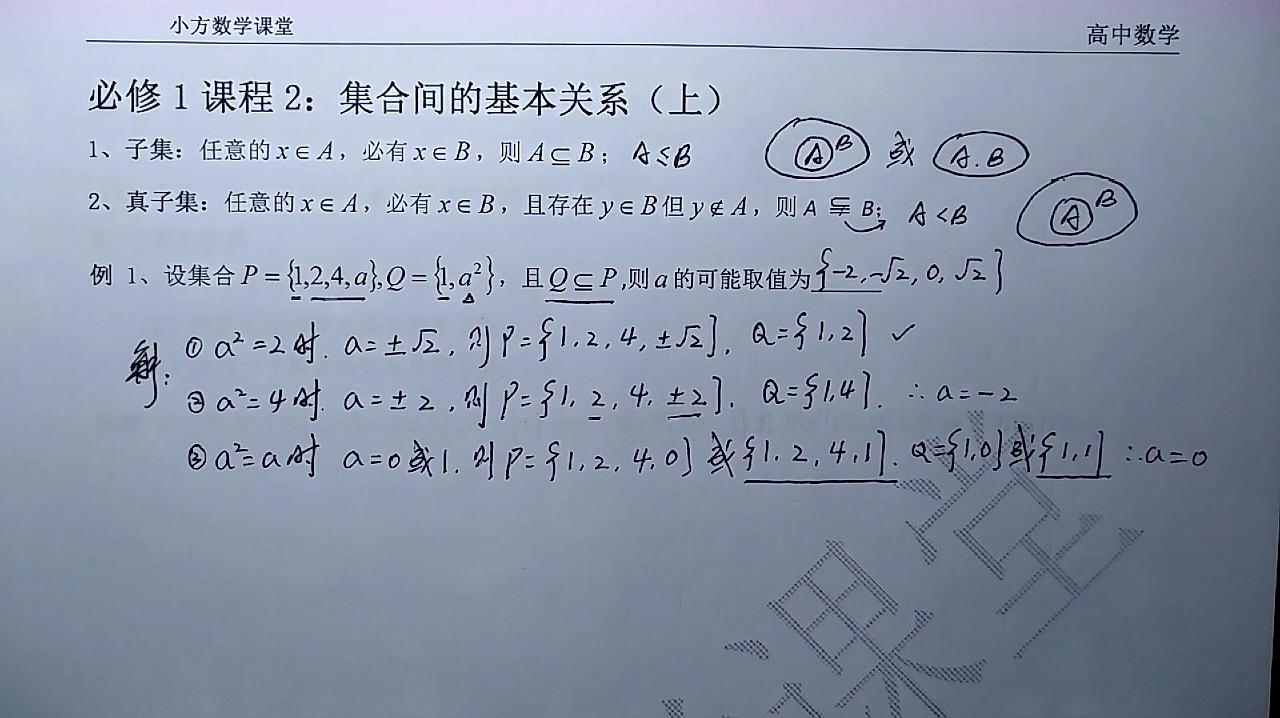 小方数学课堂
高中数学
必修1课程2：集合间的基本关系（上）
1、子集：任意的x∈A，必有x∈B，则A⊆B； A≤B A B 或 A.B
2、真子集：任意的x∈A，必有x∈B，且存在y∈B但y∉A，则A ⫋ B； A<B A B
例 1、设集合P={1,2,4,a},Q={1,a²}，且Q⊆P,则a的可能取值为{-2,-√2,0,√2}
解：① a²=2时. a=±√2，则P={1,2,4,±√2}. Q={1,2} ✓
② a²=4时. a=±2，则P={1,2,4,±2}. Q={1,4}. ∴a=-2
③ a²=a时 a=0或1.则P={1,2,4,0}或{1,2,4,1}. Q={1,0}或{1,1} ∴a=0
课堂